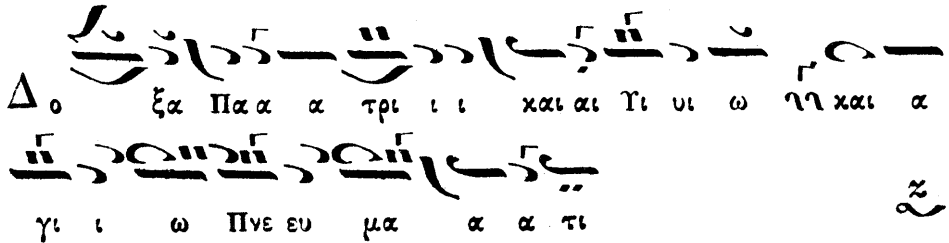 Δο ξα Πα α α τρι ι ι και αι Υι υι ω και α
γι ι ω Πνε ευ μα α α τι